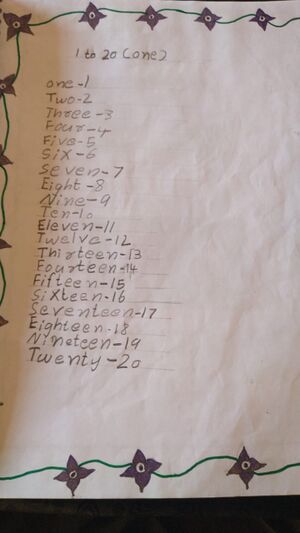 1 to 20 (one)
one-1
Two-2
Three-3
Four-4
Five-5
Six-6
Seven-7
Eight-8
Nine-9
Ten-10
Eleven-11
Twelve-12
Thirteen-13
Fourteen-14
Fifteen-15
Sixteen-16
Seventeen-17
Eighteen-18
Nineteen-19
Twenty-20